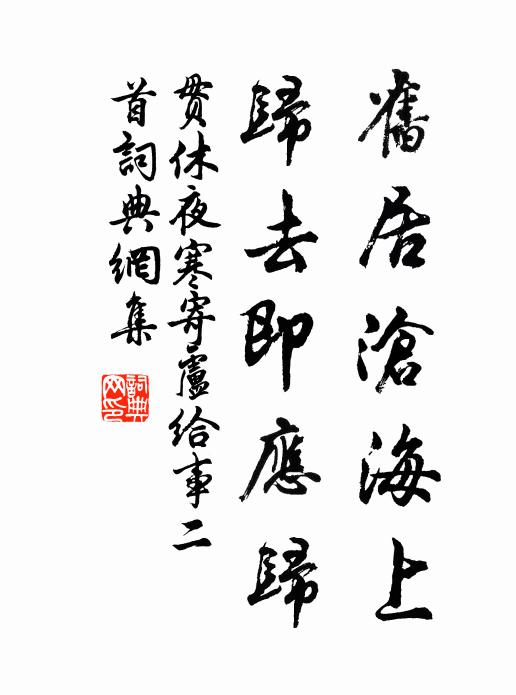 舊居滄海上
歸去即應歸
貫休夜寒寄盧給事二
首詞典網集
詞典
网印